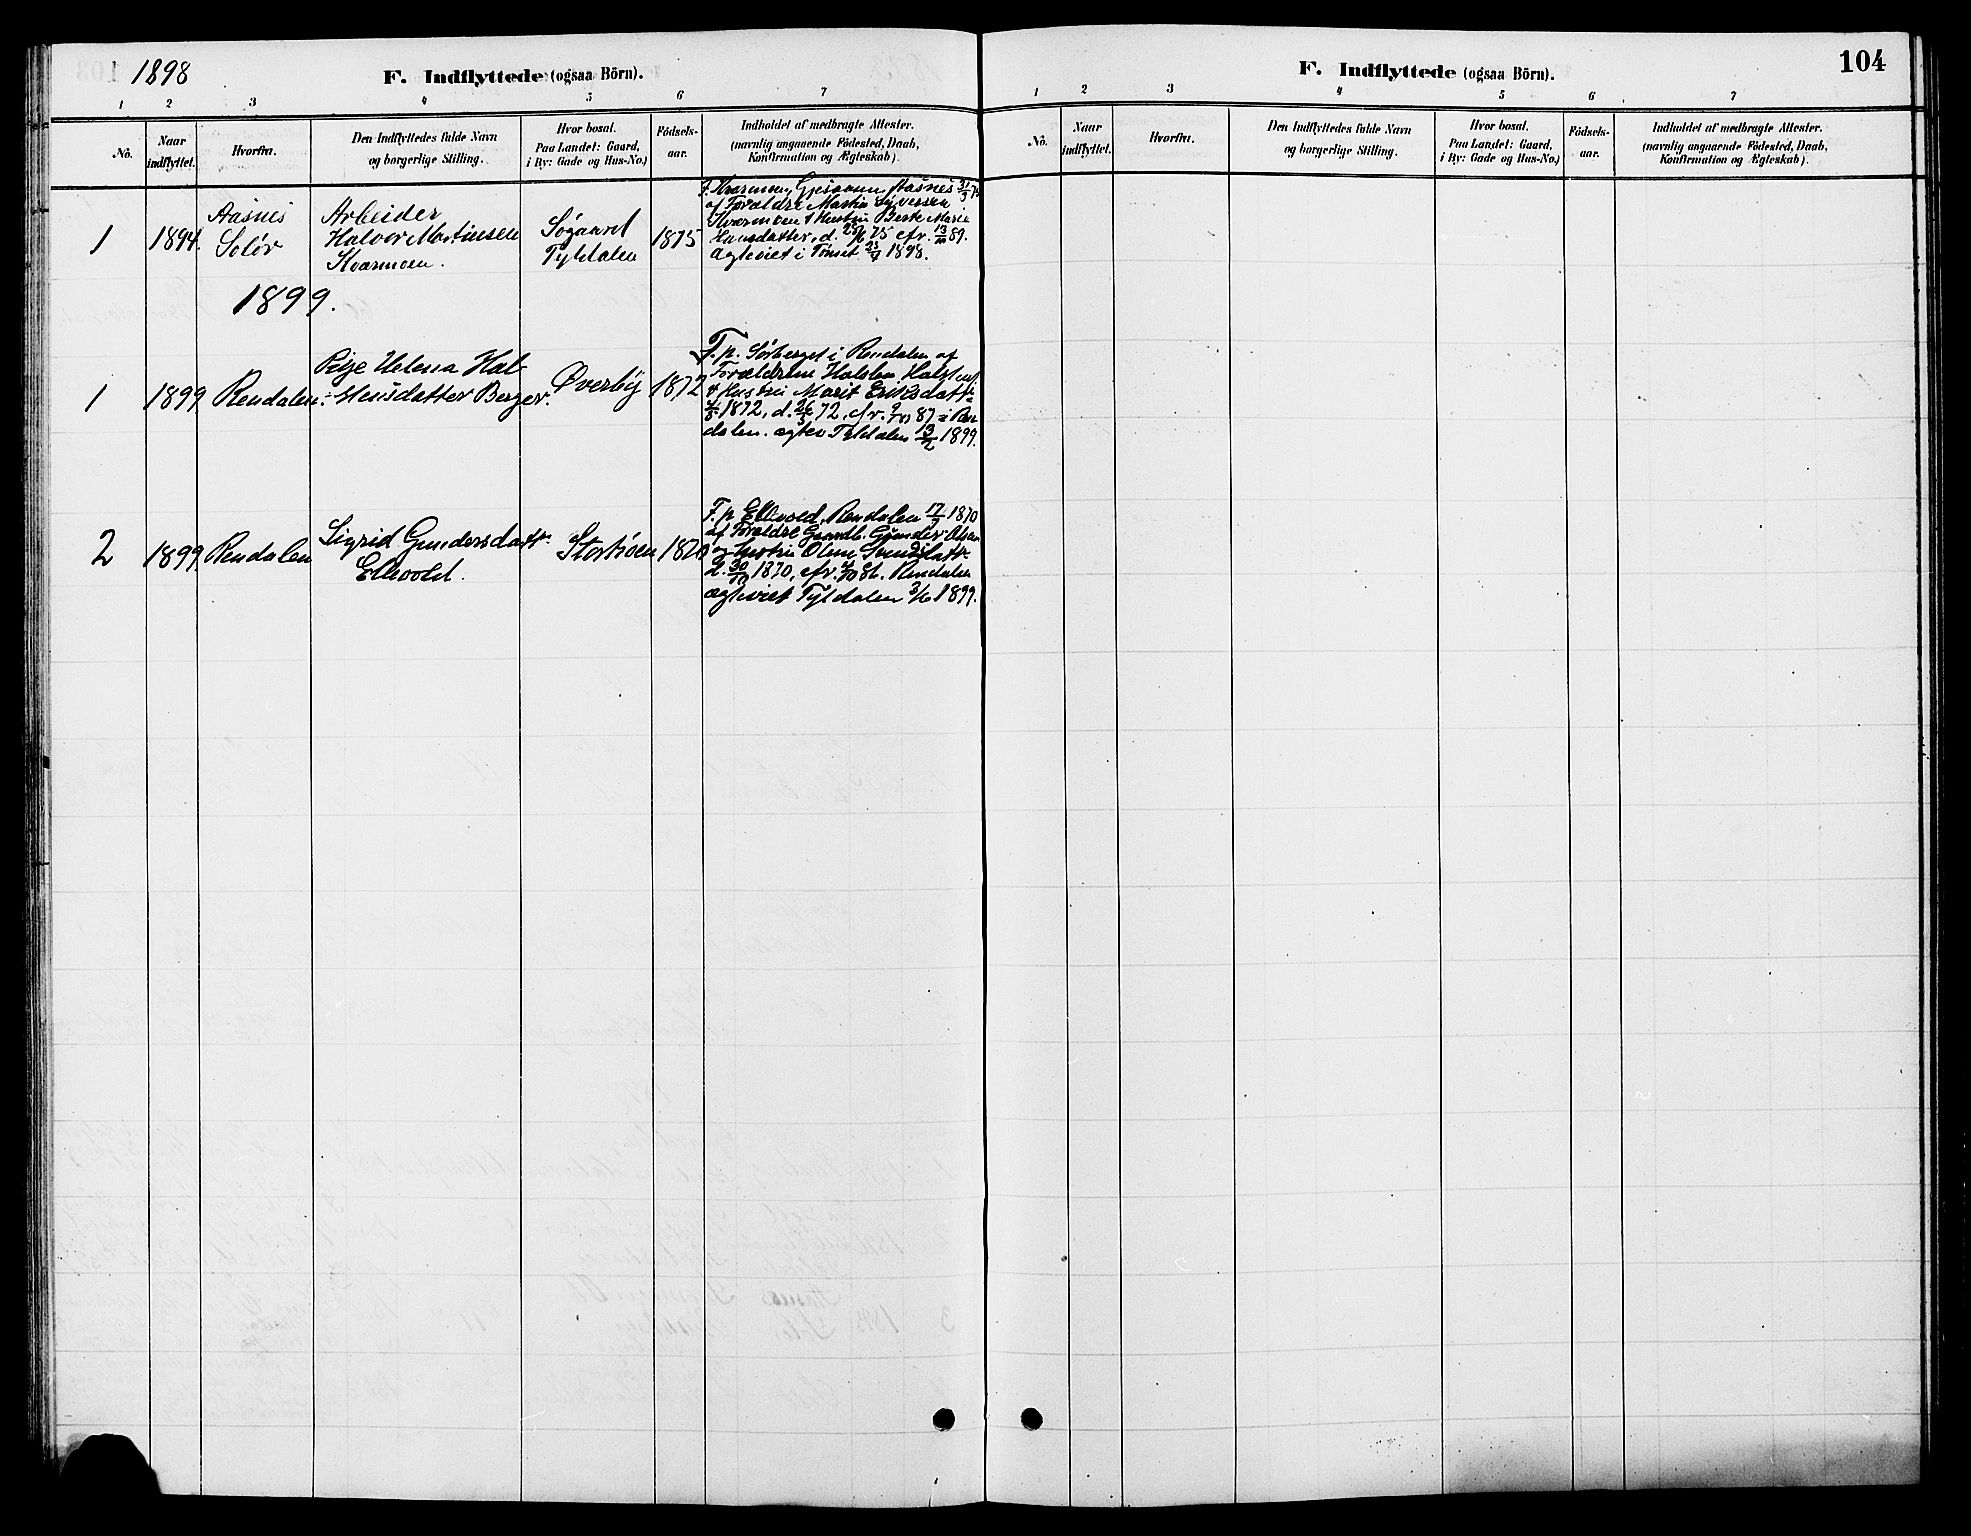 1898
F. Indflyttede (ogsaa Börn).
1 2 3 4 5 6 7
No.
Naar indflyttet.
Hvorfra.
Den Indflyttedes fulde Navn
og borgerlige Stilling.
Hvor bosat.
Paa Landet: Gaard,
i By: Gade og Hus-No.)
Födsels-
aar.
Indholdet af medbragte Attester.
(navnlig angaaende Födested, Daab,
Konfirmation og Ægteskab).
1
1894.
Aasnes
Solör
Arbeider
Halvor Martinsen
Kværmoen.
Søgaard
Tyldalen
1875
F. Kværmoen, Gjesaasen, Aasnes 31/3 75
af Forældre Martin Syversen
Kværmoen & Hustru Berte Marie
Hansdatter, d. 25/6 75 cfr. 13/10 89.
Ægteviet i Tønset 1898.
1899.
1
1899
Rendalen
Helena Hal-
stensdatter Berger.
Øverby
1872
F. p. Sørberget i Rendalen af
Forældrene Halsten Halstens.
& Hustru Marit Eriksdatt.
1872, d. 26/5 72, cfr. 87 i Ren-
dalen. ægtev Tyldalen 13/2 1899.
2
1899
Rendalen
Sigrid Gundersdatt.
Ellevold.
Storhøen
1870
F. p Ellevold, Rendalen 17/9 1870
af Forældre Gaardb. Gunder Olsen
og Hustru Oline
d. 30/10 1870, cfr. 86. Rendalen
ægteviet Tyldalen 3/6 1899.
F. Indflyttede (ogsaa Börn).
104
1 2 3 4 5 6 7
No.
Naar indflyttet.
Hvorfra.
Den Indflyttedes fulde Navn
og borgerlige Stilling.
Hvor bosat.
Paa Landet: Gaard,
i By: Gade og Hus-No.)
Födsels-
aar.
Indholdet af medbragte Attester.
(navnlig angaaende Födested, Daab,
Konfirmation og Ægteskab).